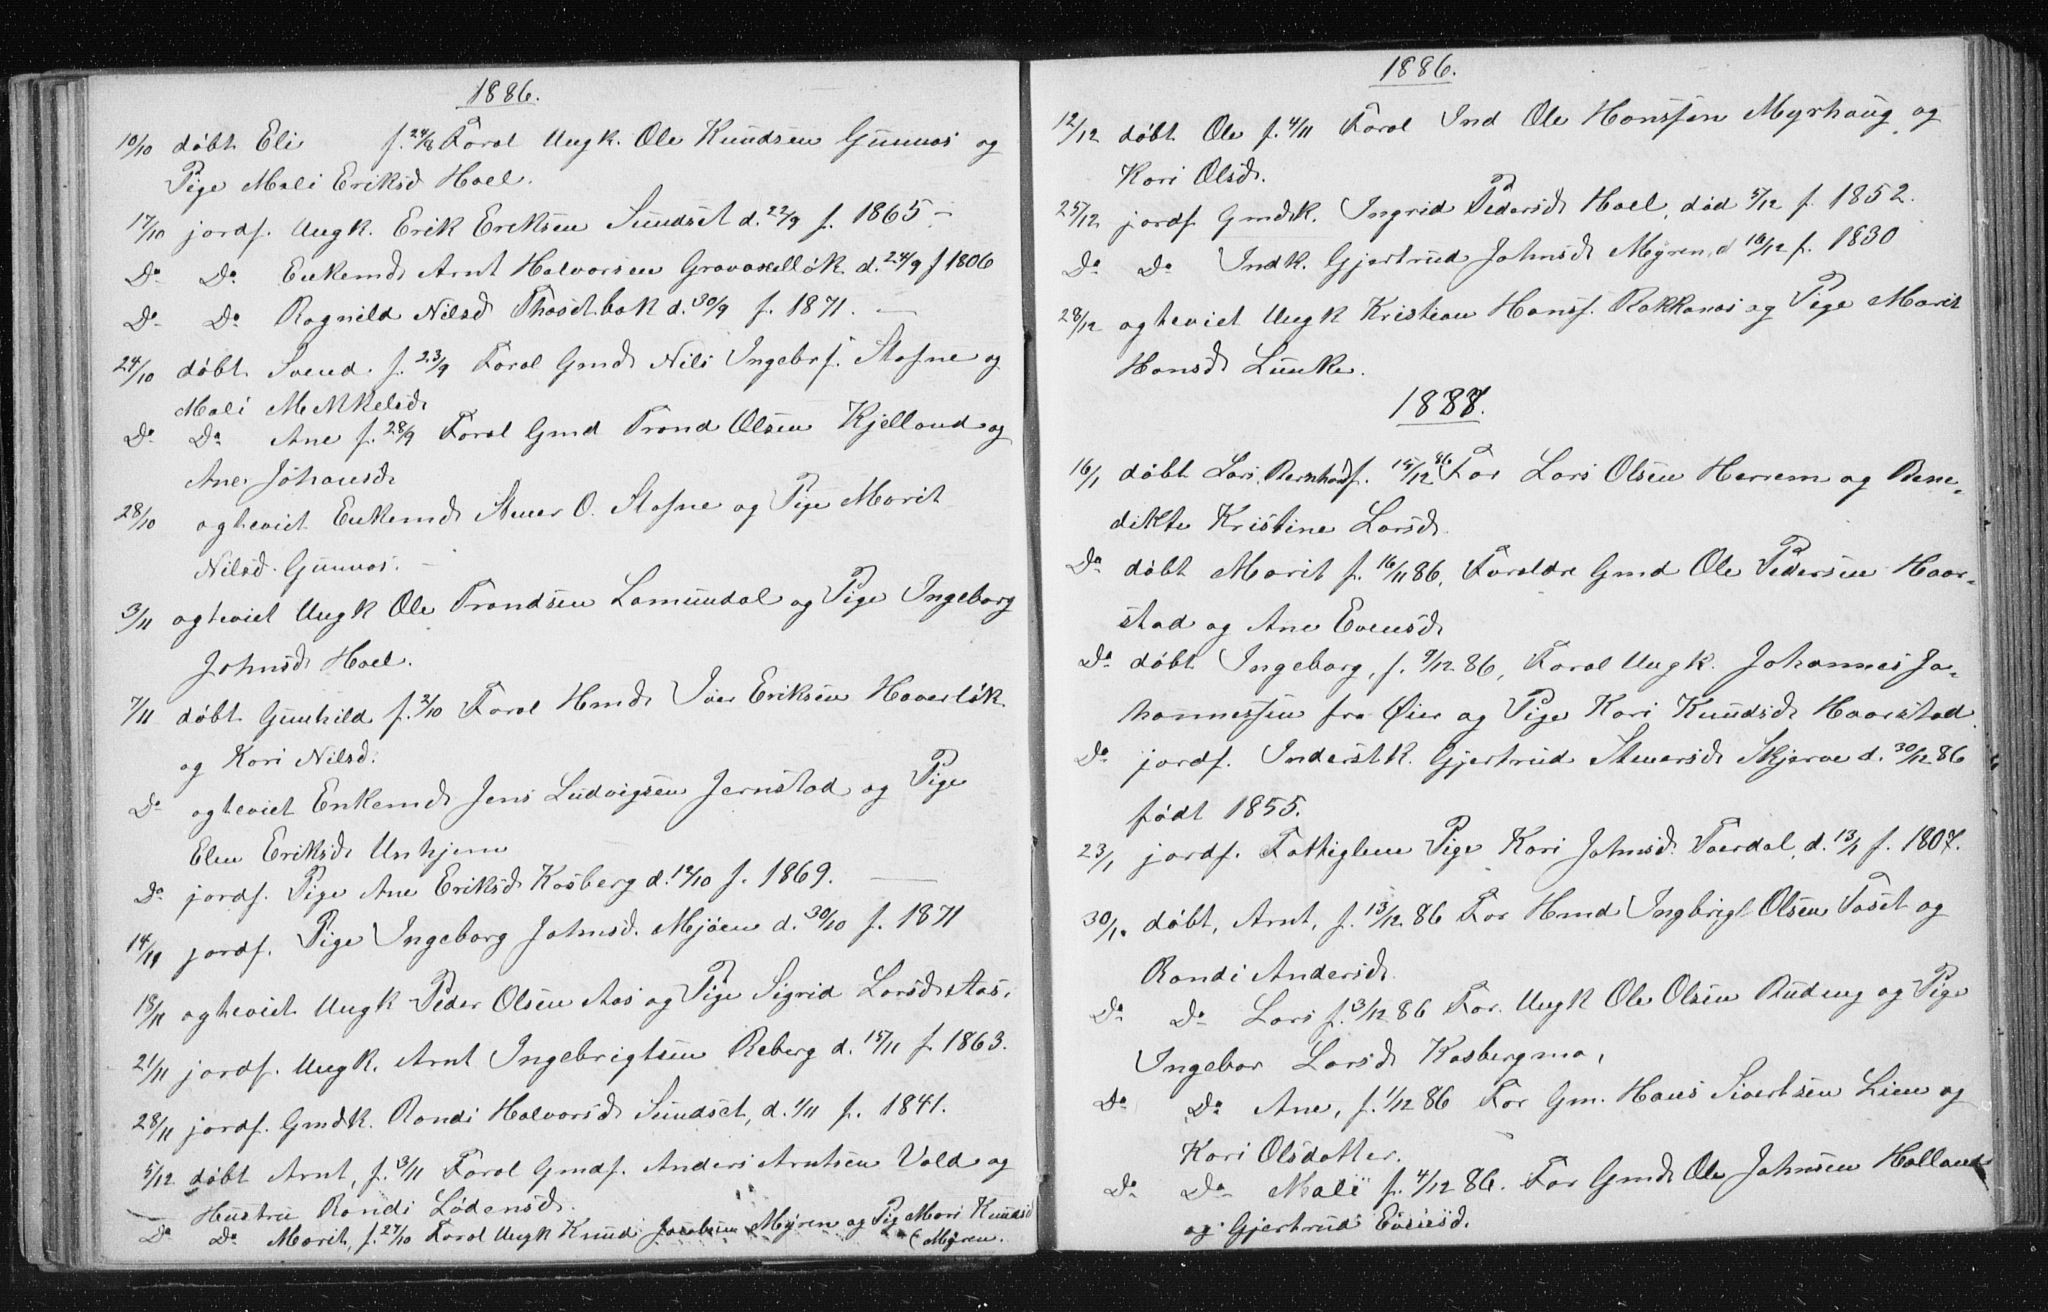 1886.
10/10 døbt Eli f. 24/8 Foræl Ungk. Ole Knudsen Gunnæs og
Pige Mali Eriksd Hoel.
17/10 jordf. Ungk. Erik Eriksen Sundset d. 22/9 f. 1865 –
Do Do Enkemd Arnt Halvorsen Gravaxelløk d. 24/9 f 1806
Do Do Ragnild Nilsd Thosetbak d. 30/9 f. 1871. —
24/10 døbt Svend. f. 23/9 Foræl Gmd Nils Ingebrs. Stafne og
Mali Mekkelsd
Do Do Ane f. 28/9 Foræl Gmd Trond Olsen Kjelland og
Ane Johansd
28/10 ægteviet Enkemd Stener O. Stafne og Pige Marit
Nilsd. Gunnæs. –
3/11 ægteviet Ungk Ole Trondsen Lomundal og Pige Ingeborg
Johnsd Hoel.
7/11 døbt Gunhild f. 2/10 Foræl Hmd Iver Eriksen Haverløk
og Kari Nilsd.
Do ægteviet Enkemd Jens Ludvigsen Jernstad og Pige
Elen Eriksd Unhjem
Do jordf. Pige Ane Eriksd Kosberg d. 12/10 f. 1869. —
14/11 jordf. Pige Ingeborg Johnsd. Mjøen d. 30/10 f. 1871
18/11 ægteviet Ungk Peder Olsen Aas og Pige Sigrid Larsd Aas.
21/11 jordf. Ungk. Arnt Ingebrigtsen Reberg d. 15/11 f. 1863.
28/11 jordf. Gmdk. Randi Halvorsd Sundset, d. 1/11 f. 1841.
5/12 døbt Arnt, f. 3/11 Foræl Gmdf. Anders Arntsen Vold og
Hustru Randi Lødensd.
Do Do Marit, f. 27/10 Foræl Ungk Knud Jacobsen Myren og Pig Mari Knudsd
(Myren.
1886.
12/12 døbt Ole f. 4/11 Foræl Ind Ole Hanssen Myrhaug og
Kari Olsd.
25/12 jordf Gmdk. Ingrid Pedersd Hoel, død 5/12 f. 1852.
Do Do Indk. Gjertrud Johnsd Myren, d 16/12 f. 1830
28/12 ægteviet Ungk Kristian Hansf. Rokkones og Pige Marit
Hansd Lunke.
1887.
16/1 døbt Lars Bernhard f. 15/12 86 For Lars Olsen Herrem og Bene-
dikte Kristine Larsd.
Do døbt Marit f. 16/11 86, Forældre Gmd Ole Pedersen Haar-
stad og Ane Evensd
Do døbt Ingeborg, f. 9/12 86, Foræl Ungk. Johannes Jo-
hannessen fra Øier og Pige Kari Knudsd Haarstad
Do jordf. Inderstk. Gjertrud Stenersd Skjerve d. 30/12 86
født 1855.
23/1 jordf. Fattiglem Pige Kari Johnsd. Toerdal, d. 13/1 f. 1807.
30/1. døbt, Arnt, f. 13/12 86 For Hmd Ingbrigt Olsen Toset og
Randi Andersd.
Do Do Lars f. 3/12 86 For. Ungk Ole Olsen Rudeng og Pige
Ingebor Larsd Kosbergmo,
Do Do Ane, f. 1/12 86 For Gm. Hans Sivertsen Lien og
Kari Olsdatter.
Do Do Mali f. 4/12 86. For Gmd Ole Johnsen Halland
og Gjertrud Evensd.